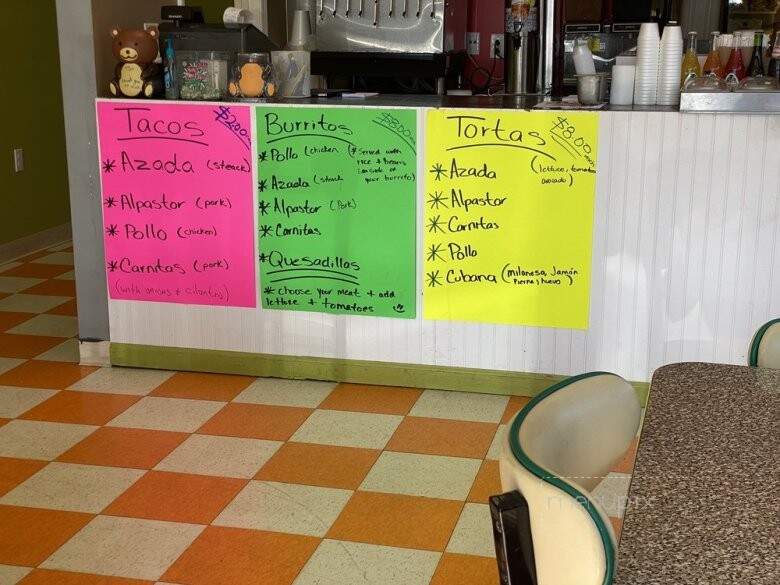 Tacos $2.00
* Azada (steack)
* Alpastor (pork)
* Pollo (chicken)
* Carnitas (pork)
(with onions & cilantro)
Burritos $8.00
* Pollo (chicken) (* Served with
rice & beans
inside of
your burrito)
* Azada (steack
* Alpastor (Pork)
* Carnitas
* Quesadillas
* choose your meat + add
lettuce + tomatoes
Tortas $8.00
(lettuce, tomatoes
avocado)
* Azada
* Alpastor
* Carnitas
* Pollo
* Cubana (milanesa, Jamón
Pierna y huevo)
menupix